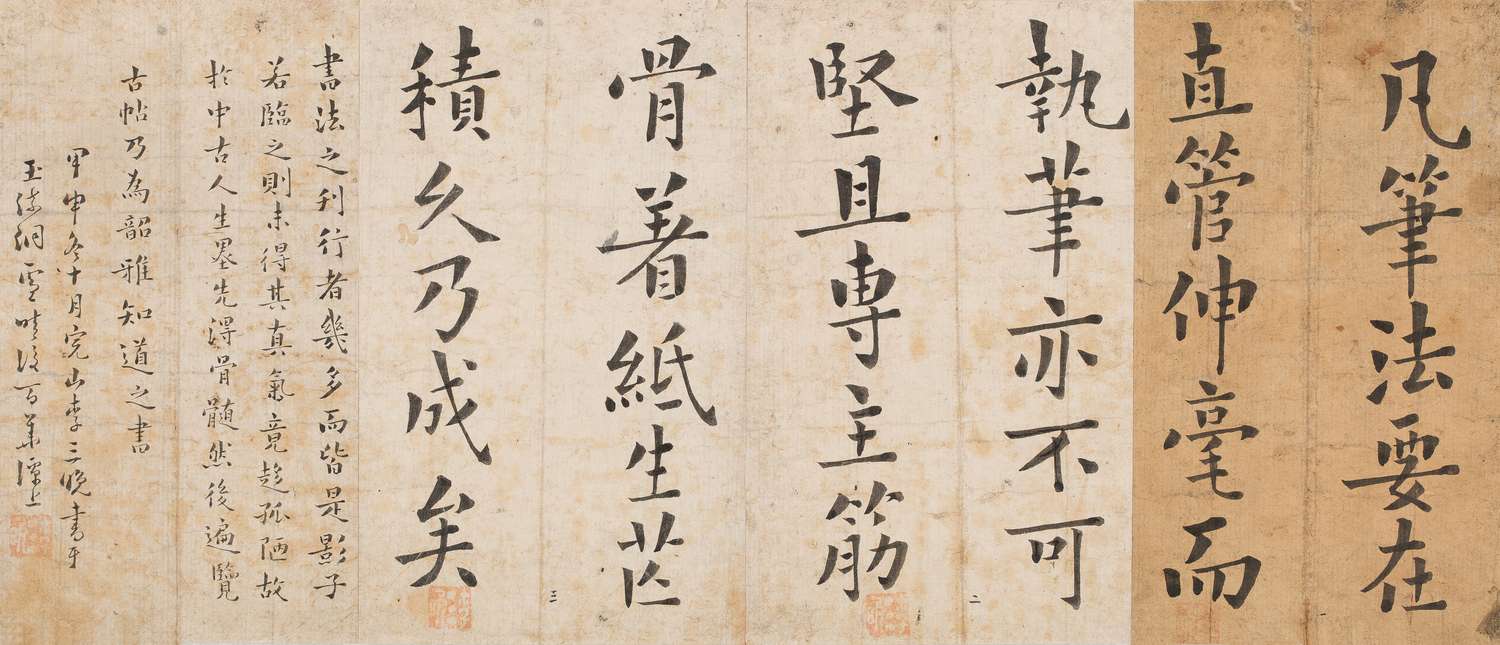 凡筆法要在
直管伸毫而
執筆亦不可
堅且專主筋
骨着紙生芒
積久乃成矣
書法之刋行者幾多而皆是影子
若臨之則未得其真氣竟趍孤陋故
於中古人生墨先淂骨髓然後遍覽
古帖乃為韶雅知道之書
甲申冬十月完山李三晚書于
玉流洞雪晴後百華潭上
一
二
三